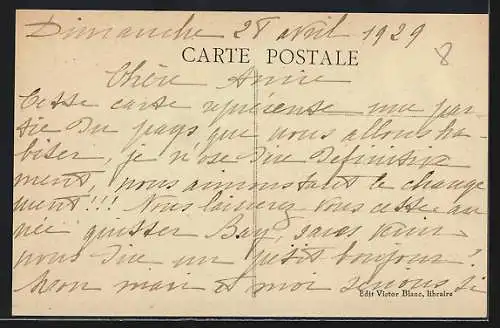 Dimanche 28 avril 1929
8
CARTE POSTALE
Chère Amie
Cette carte représente une par-
tie du pays que nous allons ha-
biter, je n'ose dire définitive
ment, nous aimons tant le change
ment!!! Nous laisserez vous cette an
née quitter Bay, sans venir
nous dire un petit bonjour!
Mon mari et moi serions si
Edit Victor Blanc, libraire